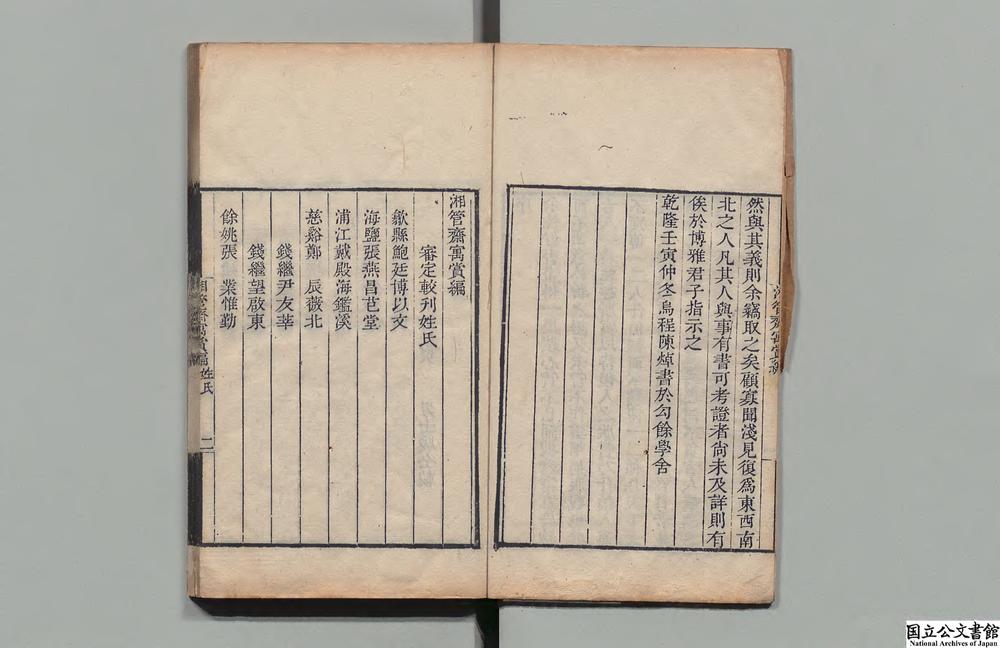 然與其義則余竊取之矣顧寡聞淺見復爲東西南
北之人凡其人與事有書可考證者尙未及詳則有
俟於博雅君子指示之
乾隆壬寅仲冬烏程陳焯書於勾餘學舍
湘管齋寓賞編
審定較刊姓氏
歙縣鮑廷博以文
海鹽張燕昌芑堂
浦江戴殿海鑑溪
慈谿鄭　辰薇北
錢繼尹友莘
錢繼望啟東
餘姚張　業惟勤
湘管齋寓賞編姓氏
二
国立公文書館
National Archives of Japan